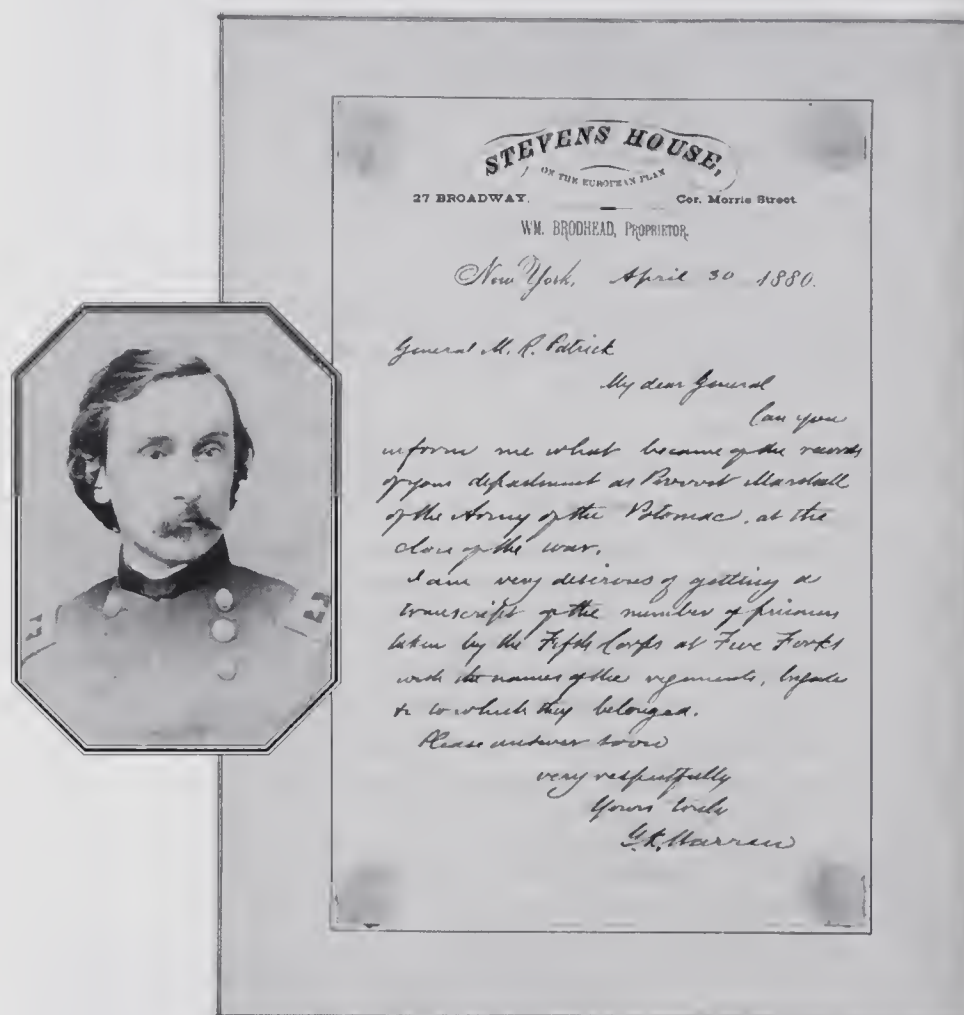 STEVENS HOUSE,
ON THE EUROPEAN PLAN
27 BROADWAY. Cor. Morris Street
WM. BRODHEAD, PROPRIETOR.
New York, April 30 1880.
General M. R. Patrick
My dear General
Can you
inform me what became of the records
of your department as Provost Marshall
of the Army of the Potomac, at the
close of the war.
I am very desirous of getting a
transcript of the number of prisoners
taken by the Fifth Corps at Five Forks
with the names of the regiments, brigade
&c to which they belonged.
Please answer soon
very respectfully
Yours truly
G. K. Warren